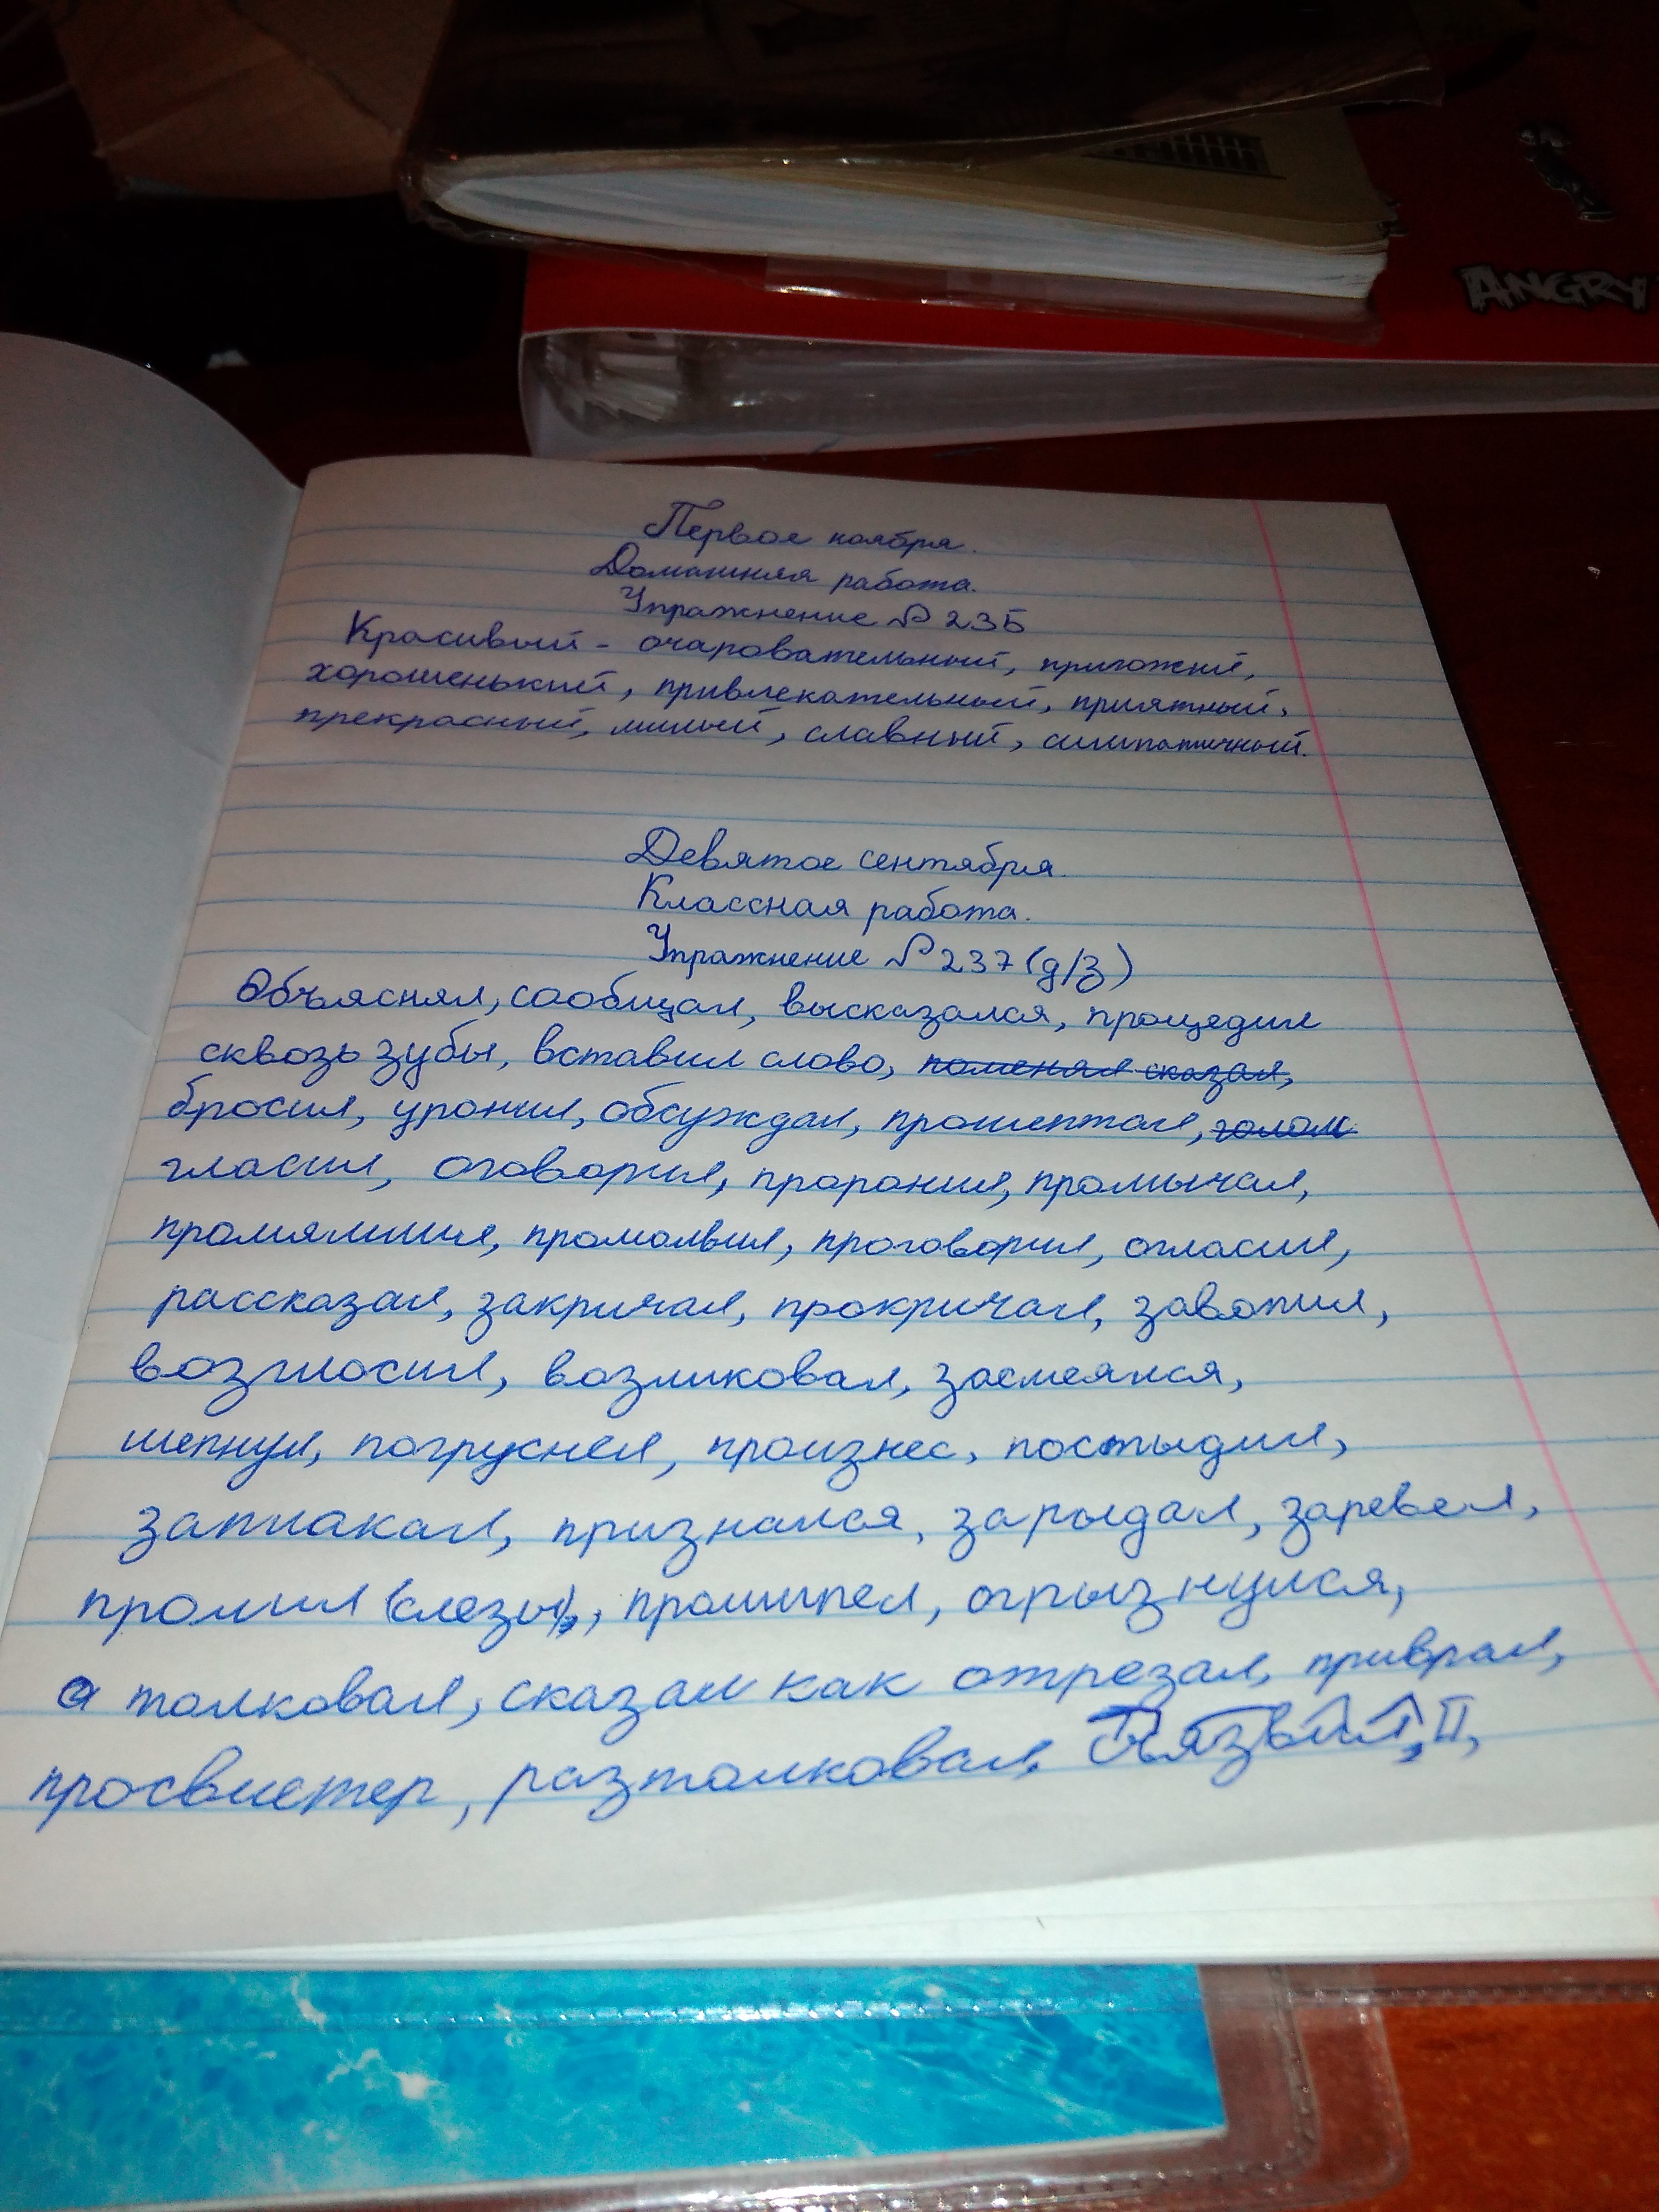 ANGRY
Первое ноября.
Домашняя работа.
Упражнение № 235
Красивый - очаровательный, пригожий,
хорошенький, привлекательный, приятный,
прекрасный, милый, славный, симпатичный.
Девятое сентября.
Классная работа.
Упражнение № 237 (д/з)
Объяснял, сообщал, высказался, процедил
сквозь зубы, вставил слово, поменял сказал,
бросил, уронил, обсуждал, прошептал,
гласил, оговорил, проронил, промычал,
промямлил, промолвил, проговорил, огласил,
рассказал, закричал, прокричал, завопил,
возгласил, возликовал, засмеялся,
шепнул, погруснел, произнес, постыдил,
заплакал, признался, зарыдал, заревел,
пролил (слезы), прошипел, огрызнулся,
толковал, сказал как отрезал, приврал,
просвистер, разтолковал,